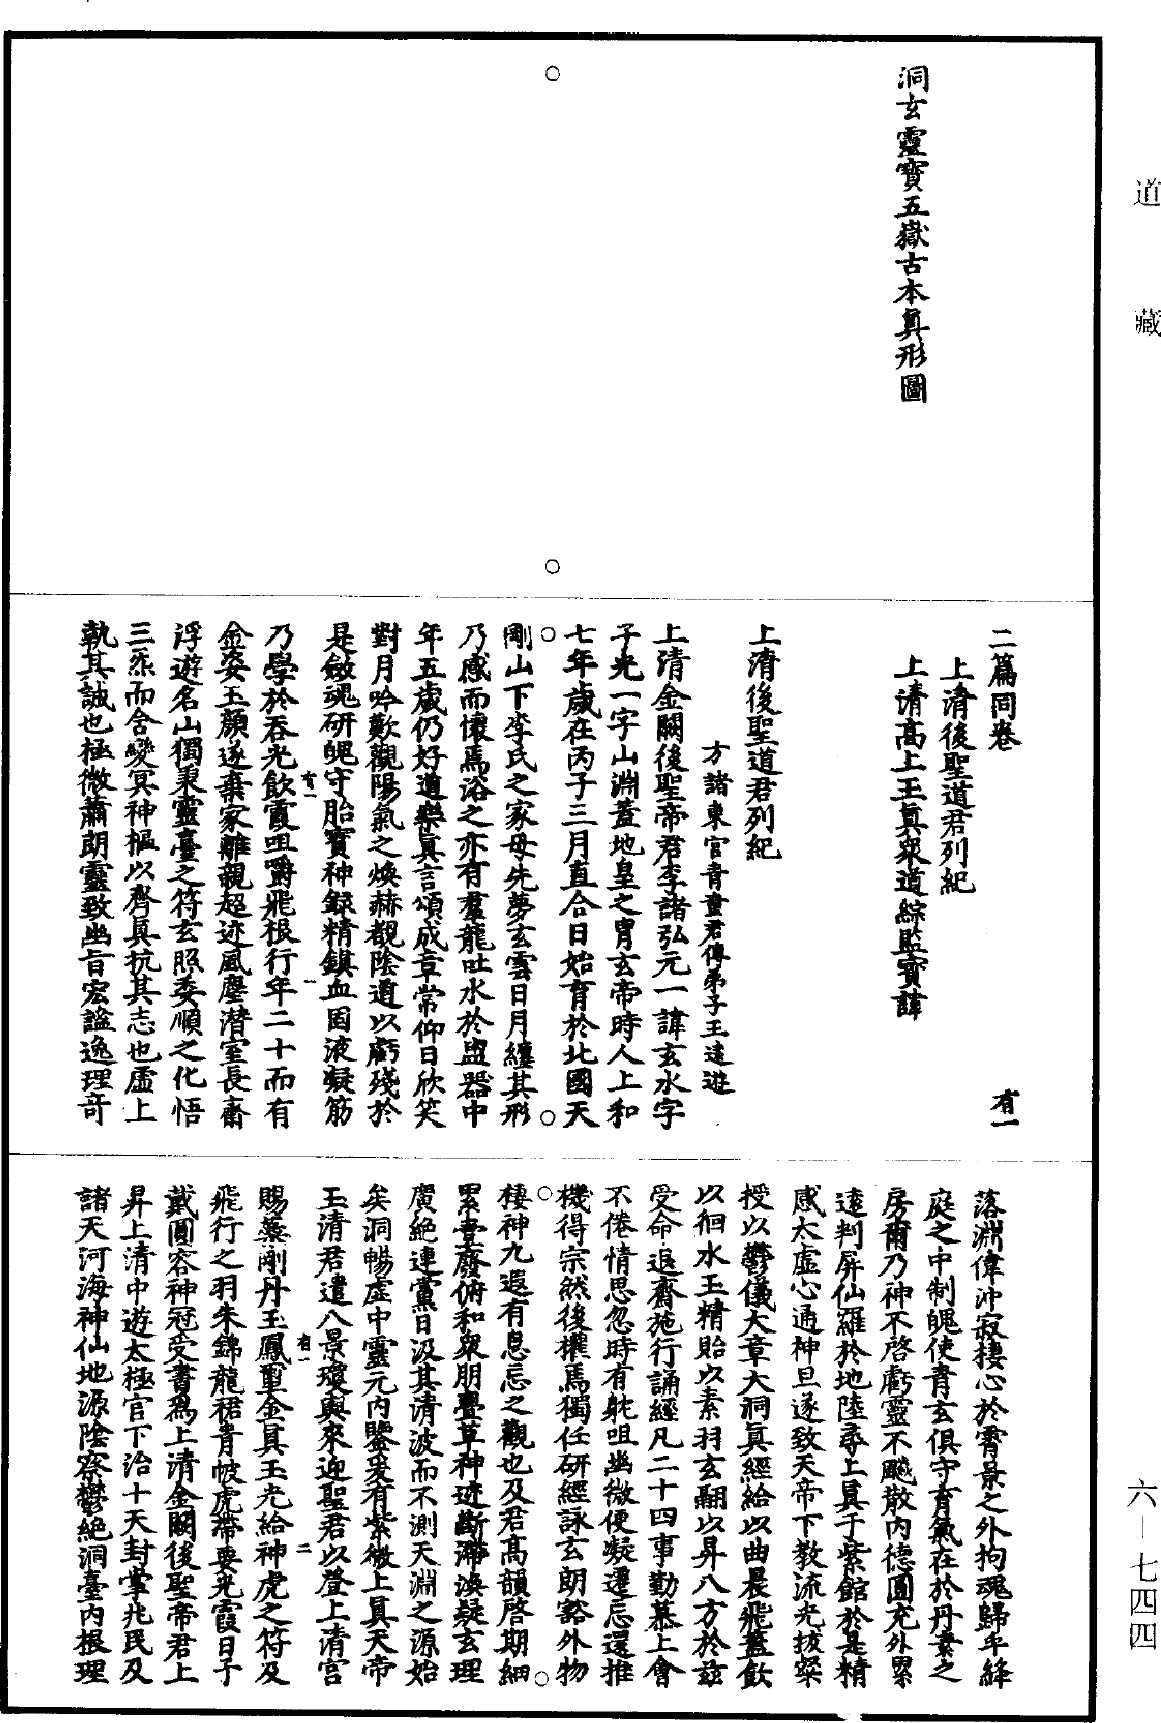 道藏
洞玄靈寶五嶽古本真形圖
二篇同卷
有一
上清後聖道君列紀
上清高上玉真眾道綜監寶諱
上清後聖道君列紀
方諸東宮青童君傳弟子王遠遊
上清金闕後聖帝君李諸弘元一諱玄水字
子光一字山淵蓋地皇之冑玄帝時人上和
七年歲在丙子三月直合日始育於北國天
剛山下李氏之家母先夢玄雲日月纏其形
乃感而懷焉浴之亦有羣龍吐水於盥器中
年五歲仍好道樂真言頌成章常仰日欣笑
對月吟歎觀陽氣之煥赫覩陰道以虧殘於
是斂魂研魄守胎寶神錄精鎮血固液凝筋
有一
一
乃學於吞光飲霞咀嚼飛根行年二十而有
金姿玉顏遂棄家離親超迹風塵潛室長齋
浮遊名山獨秉靈臺之符玄照委順之化悟
三炁而含變冥神樞以齊真抗其志也虛上
執其誠也極微蕭朗靈致幽旨宏謐逸理奇
落淵偉沖寂棲心於霄景之外拘魂歸乎絳
庭之中制魄使青玄俱守育氣在於丹素之
房爾乃神不啓虧靈不飈散內德圓充外累
遠判屏仙羅於地陸尋上真于紫館於是精
感太虛心通神旦遂致天帝下教流光拔粲
授以鬱儀大章大洞真經給以曲晨飛蓋飲
以徊水玉精貽以素羽玄翮以昇八方於茲
受命退齋施行誦經凡二十四事勤慕上會
不倦情思忽時有躭咀幽微便凝遷忘還推
機得宗然後櫂焉獨任研經詠玄朗豁外物
棲神九遐有息忘之觀也及君高韻啓期細
累豊廢俯和眾朋亹草神迹斷滯渙疑玄理
廣絕連黨日汲其清波而不測天淵之源始
矣洞暢虛中靈元內鑒爰有紫微上真天帝
玉清君遣八景瓊輿來迎聖君以登上清宮
有一
二
賜蘂剛丹玉鳳璽金真玉光給神虎之符及
飛行之羽朱錦龍裙青帔虎帶要光霞日子
戴圓容神冠受書爲上清金闕後聖帝君上
昇上清中遊太極宮下治十天封掌兆民及
諸天河海神仙地源陰察鬱絕洞臺內根理
六—七四四